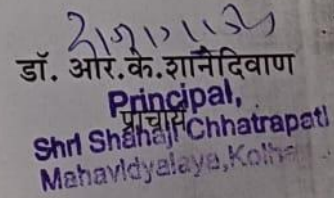 डॉ. आर.के.शानेदिवाण
Principal,
प्राचार्य
Shri Shahaji Chhatrapati
Mahavidyalaya,